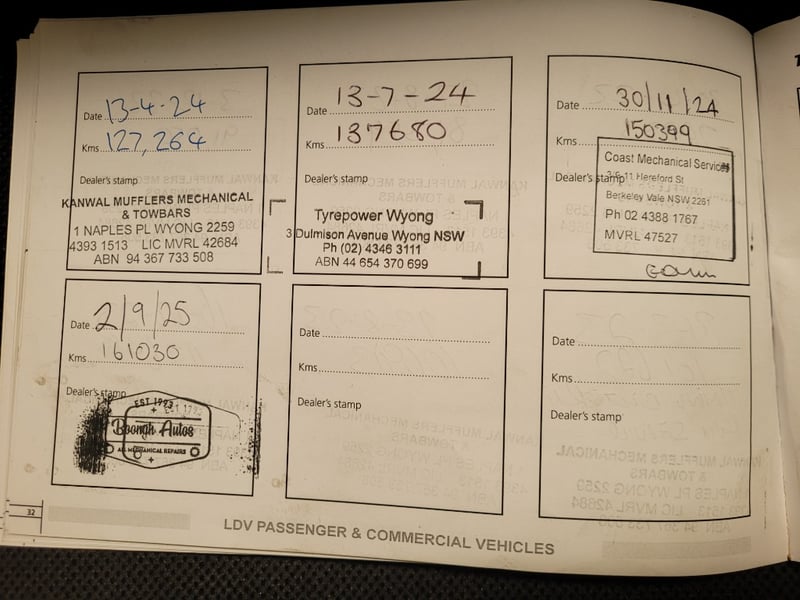 Date 13-4-24
Kms 127,264
Dealer's stamp
KANWAL MUFFLERS MECHANICAL
& TOWBARS
1 NAPLES PL WYONG 2259
4393 1513 LIC MVRL 42684
ABN 94 367 733 508
Date 13-7-24
Kms 137680
Dealer's stamp
Tyrepower Wyong
3 Dulmison Avenue Wyong NSW
Ph (02) 4346 3111
ABN 44 654 370 699
Date 30/11/24
Kms 150399
Dealer's stamp
Coast Mechanical Services
11 Hereford St
Berkeley Vale NSW 2261
Ph 02 4388 1767
MVRL 47527
Date 2/9/25
Kms 161030
Dealer's stamp
EST 1993
Autos
MECHANICAL REPAIRS
Date
Kms
Dealer's stamp
Date
Kms
Dealer's stamp
32
LDV PASSENGER & COMMERCIAL VEHICLES